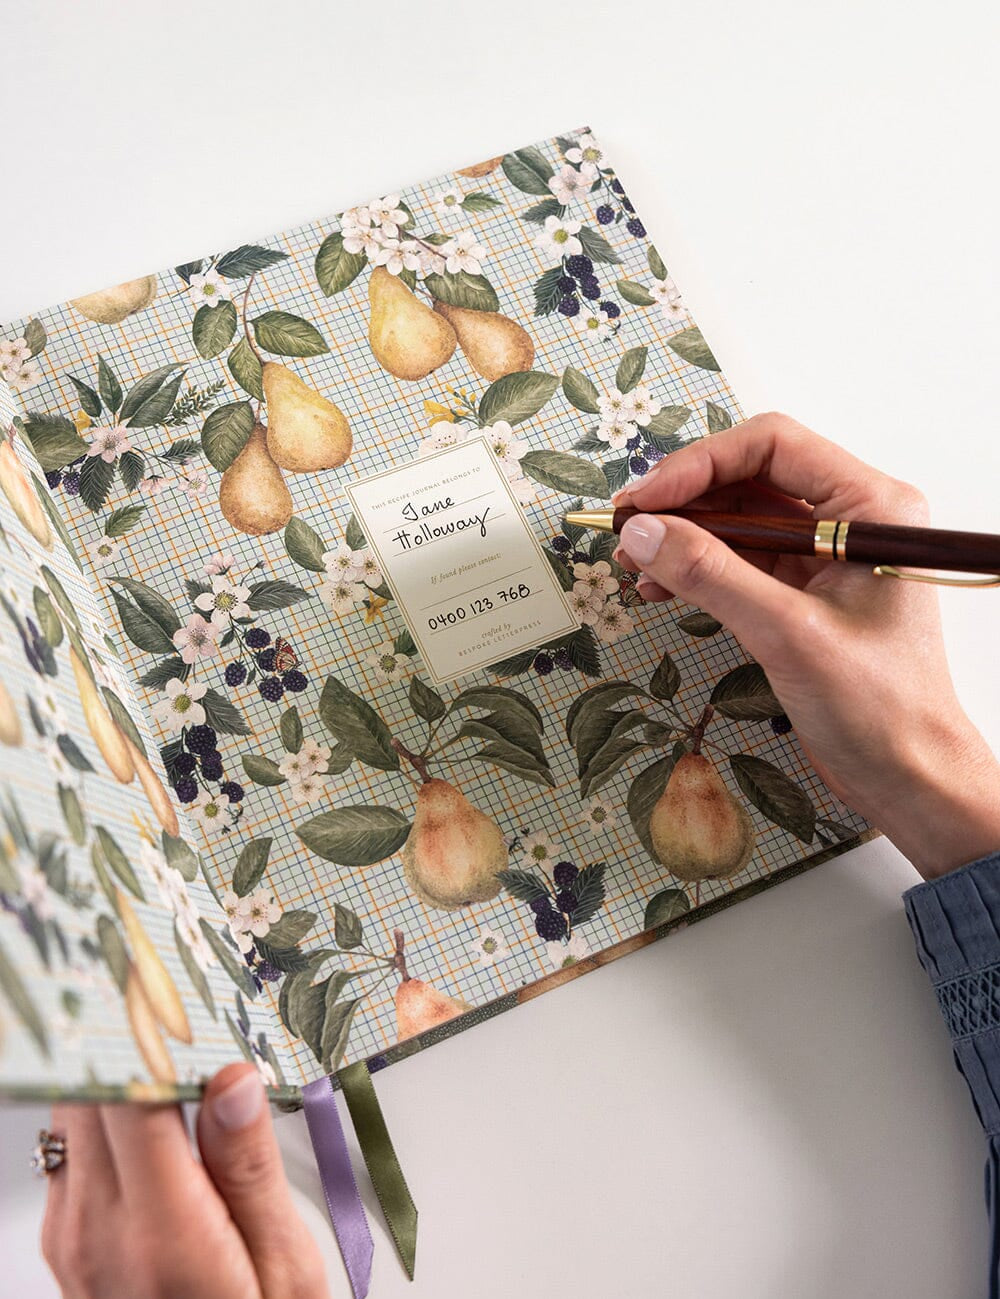 THIS RECIPE JOURNAL BELONGS TO
Jane
Holloway
If found please contact:
0400 123 768
crafted by
BESPOKE LETTERPRESS